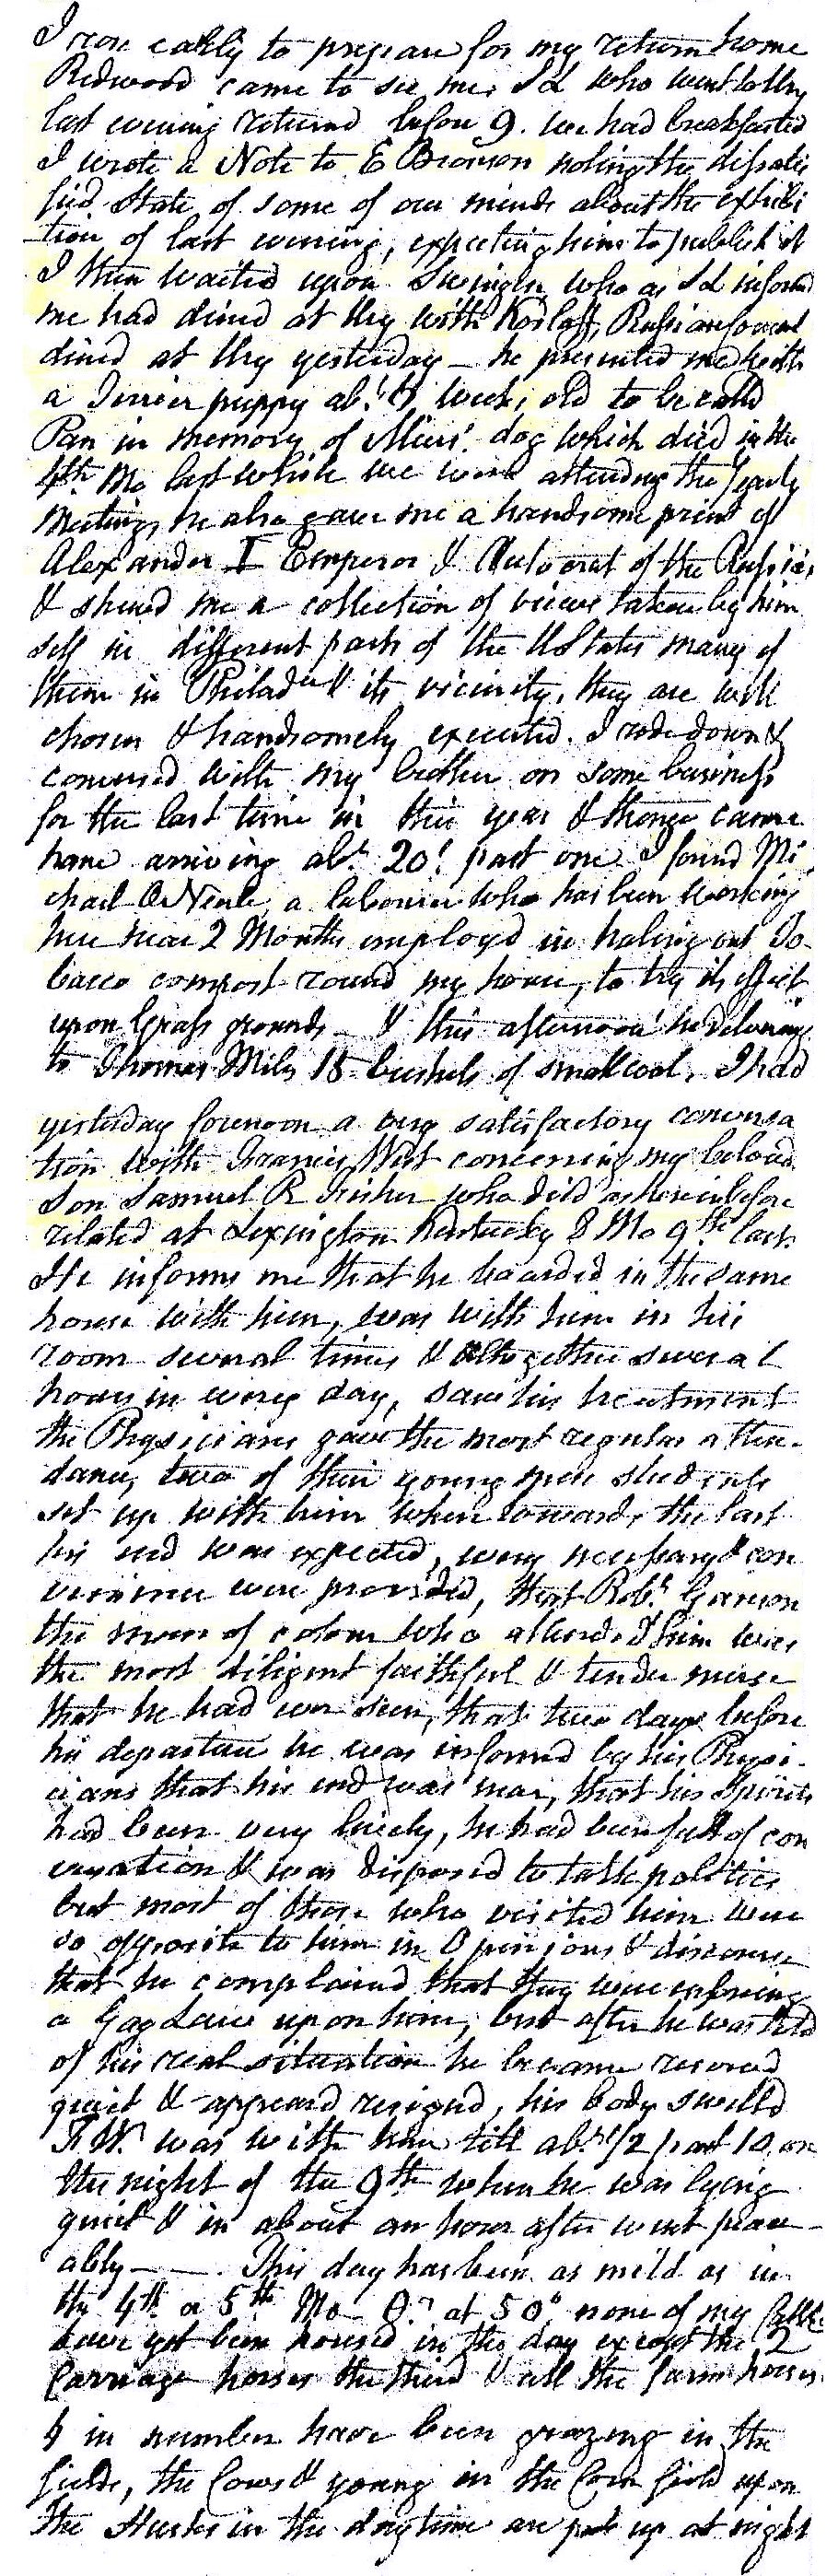 I rose early to prepare for my return home
Redwood came to see me. Id who went to thy
last evening returned before 9. we had breakfasted
I wrote a Note to E Bronson noting the dissatis
fied State of some of our minds about the exhibi
tion of last evening, expecting him to publish it
I then waited upon Swingin who as Id informd
me had dined at thy with Kosloff, Russian Consul
dined at thy yesterday — he presented me with
a Terrier puppy abt. weeks old to be called
Pan in memory of dog which died in the
4th. Mo last while we were attending the Yearly
Meeting, he also gave me a handsome print of
Alexander I Emperor & Autocrat of the Russias
& shewed me a collection of views taken by him
self in different parts of the UStates many of
them in Philada. & its vicinity, they are well
chosen & handsomely executed. I rode down &
conversed with my brother on some business
for the last time in this year & thence came
home arriving abt. 20' past one. I found Mi
chael ONeale, a labourer who has been working
here near 2 Months employd in haling out To-
bacco compost round my house, to try its effect
upon Grass grounds — & this afternoon he delivering
to Thomas Miles 18 bushels of small coal. I had
yesterday forenoon a very satisfactory conversa
tion with Francis West concerning my beloved
Son Samuel R Fisher who died as herein before
related at Lexington Kentucky 8 Mo 9th. last.
He informs me that he boarded in the same
house with him, was with him in his
room several times & altogether several
hours in every day, saw his treatment
the Physicians gave the most regular atten-
dance, two of their young men students
set up with him when towards the last
his end was expected, every necessary & con
venience were provided, that Robt. Garison
the man of colour who attended him was
the most diligent faithful & tender nurse
that he had ever seen, that two days before
his departure he was informed by his Physi-
cians that his end was near, that his Spirits
had been very lively, he had been full of con
versation & was disposed to talk politics
but most of those who visited him were
so opposite to him in Opinions & discourse
that he complaind that they were enforcing
a Gag Law upon him, but after he was told
of his real situation he became reserved
quiet & appeard resignd, his body swelld
F.W. was with him till abt. 1/2 past 10, on
the night of the 9th when he was lying
quiet & in about an hour after went peace-
ably — —. This day has been as mild as in
the 4th or 5th Mo at 50° none of my Cattle
have yet been housed in the day except the 2
Carriage horses the third & all the farm horses
4 in number have been grazing in the
fields, the Cows & young in the Corn field upon
the Husks in the daytime are put up at night